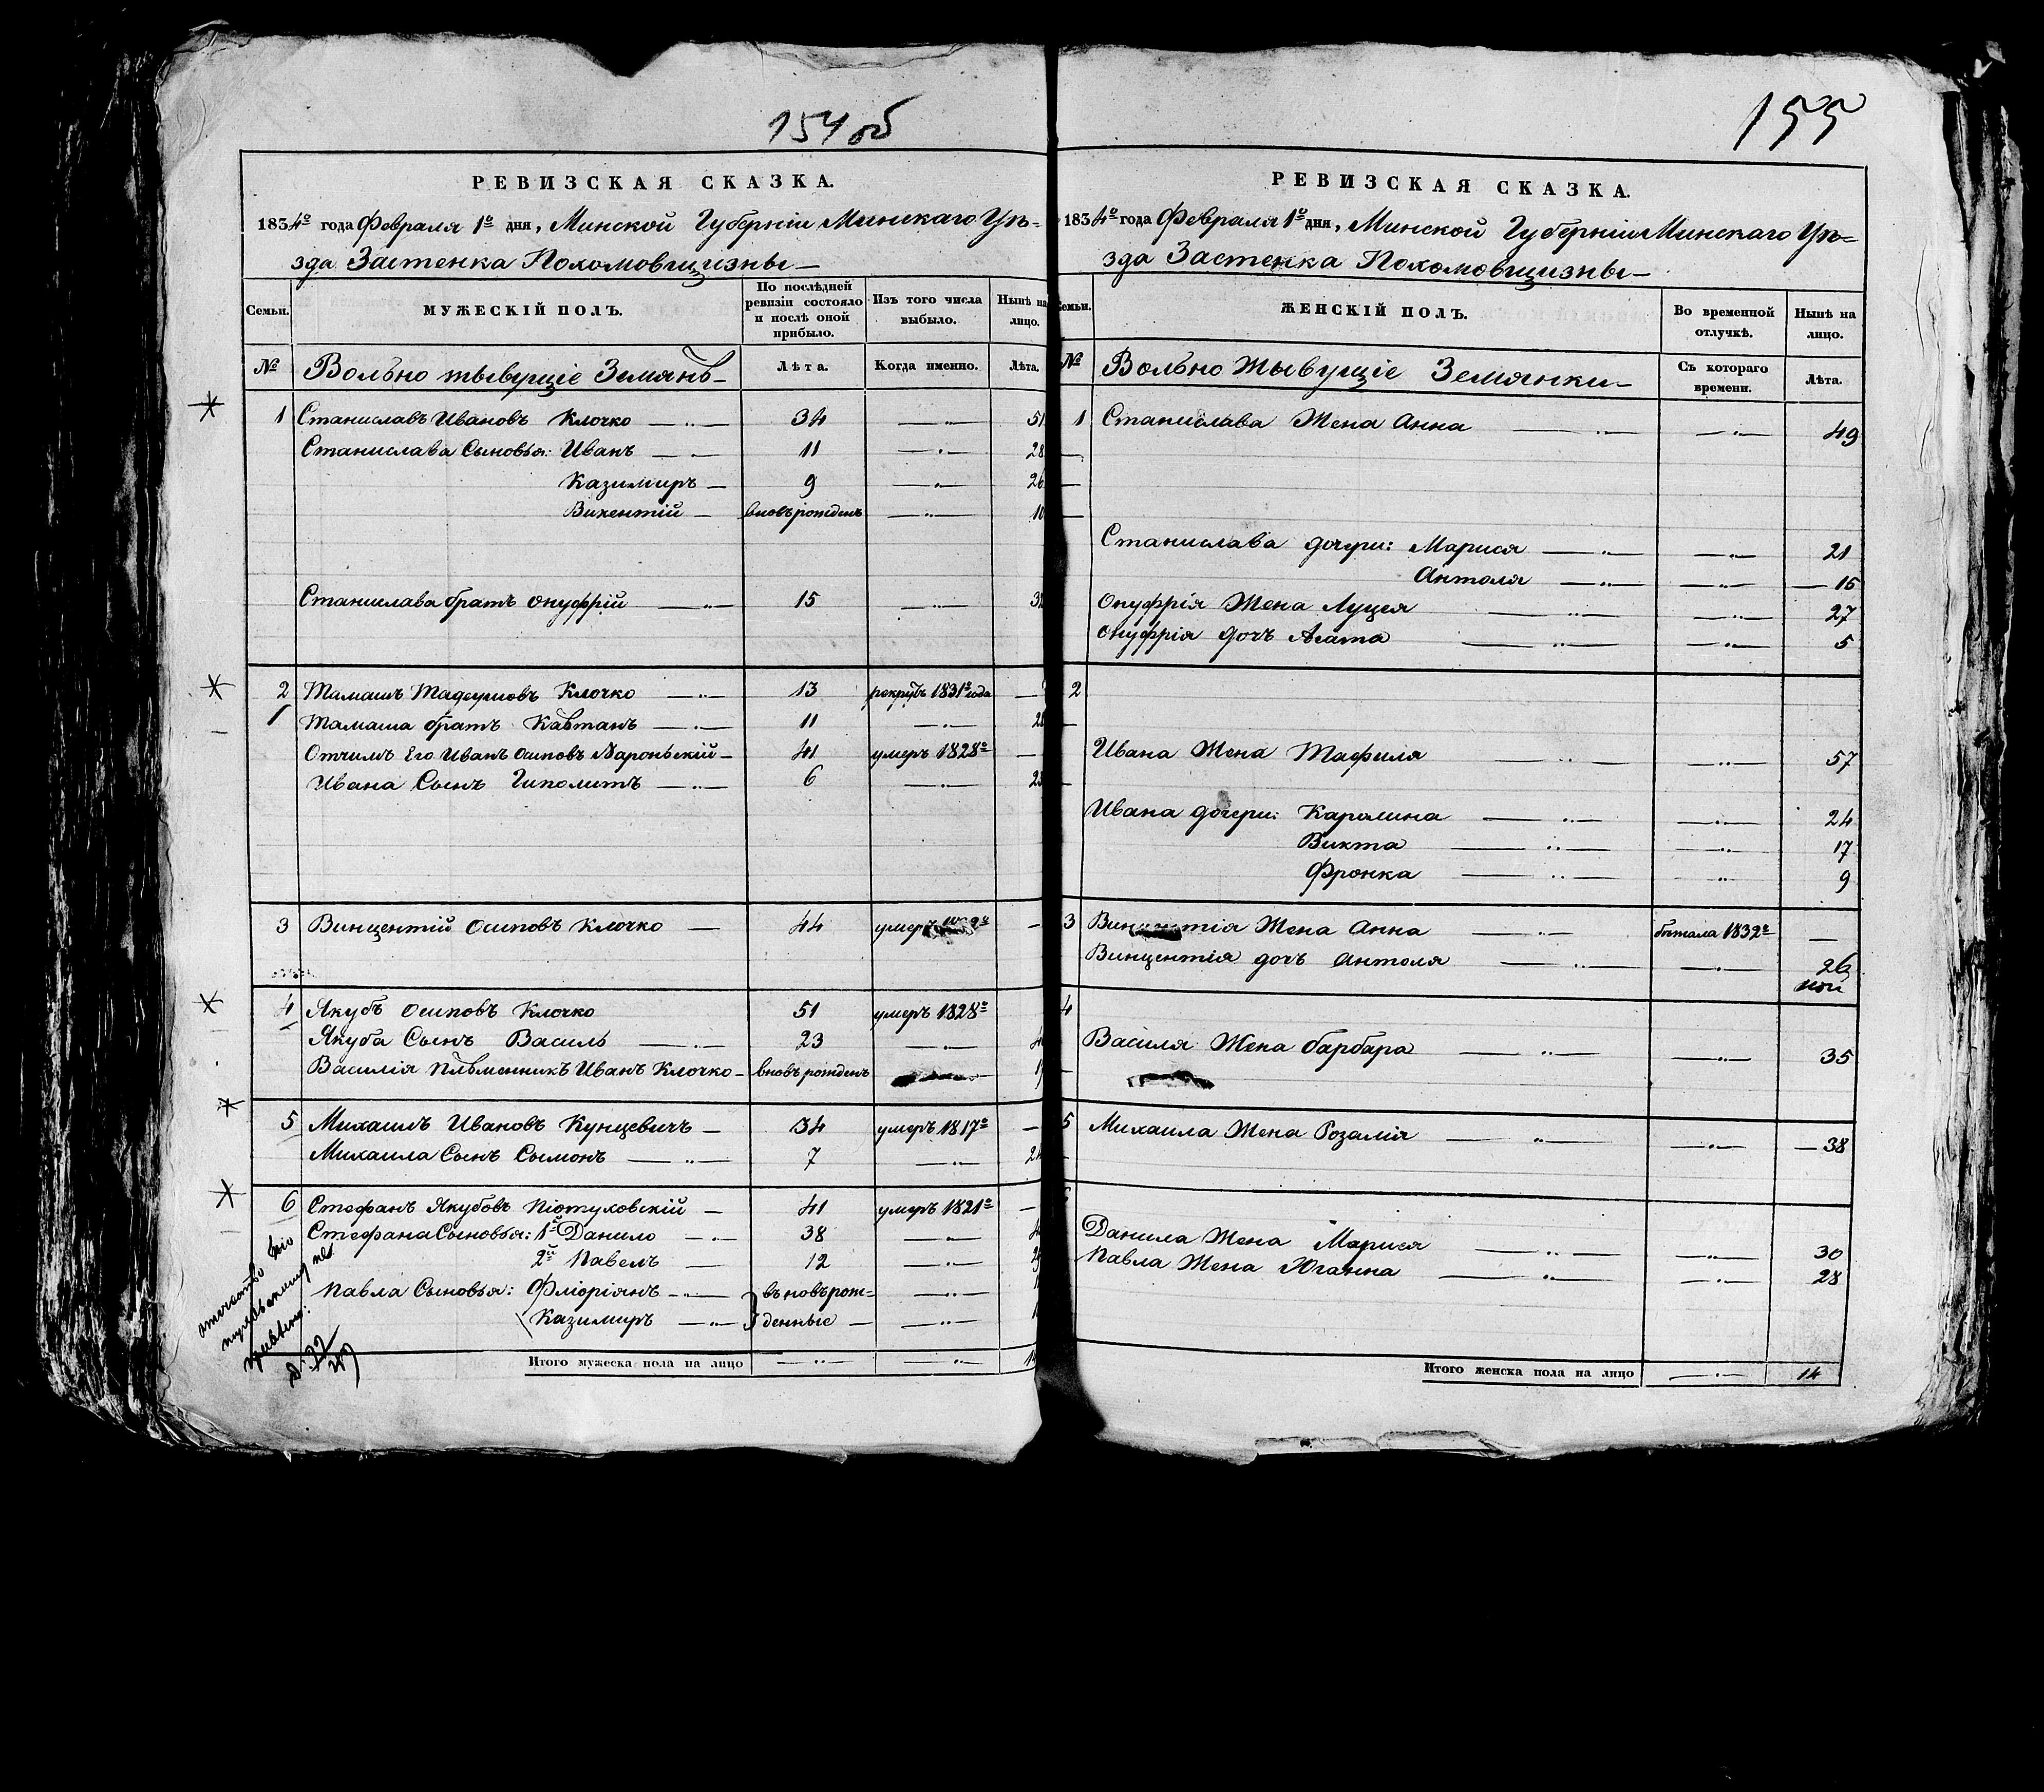 154 об
РЕВИЗСКАЯ СКАЗКА.
1834го года Февраля 1го дня, Минской Губерніи Минскаго Уѣ=
зда Застенка Похомовщизны—
Семьи.
МУЖЕСКІЙ ПОЛЪ.
По послѣдней ревизіи состояло и послѣ оной прибыло.
Изъ того числа выбыло.
Нынѣ на лицо.
№ Вольно жывущіе Земянѣ— Лѣта. Когда именно. Лѣта.
1 Станиславъ Ивановъ Клочко 34 51
Станислава Сыновья: Иванъ 11 28
Казимиръ 9 26
Викентій вновь рожденъ 10
Станислава братъ Онуфрій 15
2 Тамашъ Тадеушовъ Клочко 13 рекрутъ 1831го года
Тамаша братъ Каэтанъ 11 28
Отчимъ Его Иванъ Осиповъ 41 умеръ 1828го
Ивана Сынъ Гиполитъ 6
3 Винцентій Осиповъ Клочко 44 умеръ
4 Якубъ Осиповъ Клочко 51 умеръ 1828го
Якуба Сынъ Василь 23
Василія Плѣменникъ Иванъ Клочко вновь рожденъ
5 Михаилъ Ивановъ Кунцевичъ 34 умеръ 1817го
Михаила Сынъ Сымонъ 7 24
6 Стефанъ Якубовъ Піотуховскій 41 умеръ 1821го
Стефана Сыновья: 1й Данило 38
2й Павелъ 12
Павла Сыновья: Фліоріянъ вновь рож=
Казимиръ денные
Итого мужеска пола на лицо
155
РЕВИЗСКАЯ СКАЗКА.
1834го года Февраля 1го дня, Минской Губерніи Минскаго Уѣ=
зда Застенка Похомовщизны—
Семьи.
ЖЕНСКІЙ ПОЛЪ.
Во временной отлучкѣ.
Нынѣ на лицо.
№ Вольно Жывущіе Земянки— Съ котораго времени. Лѣта.
1 Станислава Жена Анна 49
Станислава дочери: Марися 21
Антоля 15
Онуфрія Жена Луцея 27
Онуфрія дочь Агата 5
2
Ивана Жена Тафиля 57
Ивана дочери: Каролина 24
Викта 17
Фронка 9
3 Винцентія Жена Анна бежала 1832го
Винцентія дочь Антоля 26
4
Василя Жена барбара 35
5 Михаила Жена Розалія 38
Данила Жена Марися 30
Павла Жена Юганна 28
Итого женска пола на лицо 14